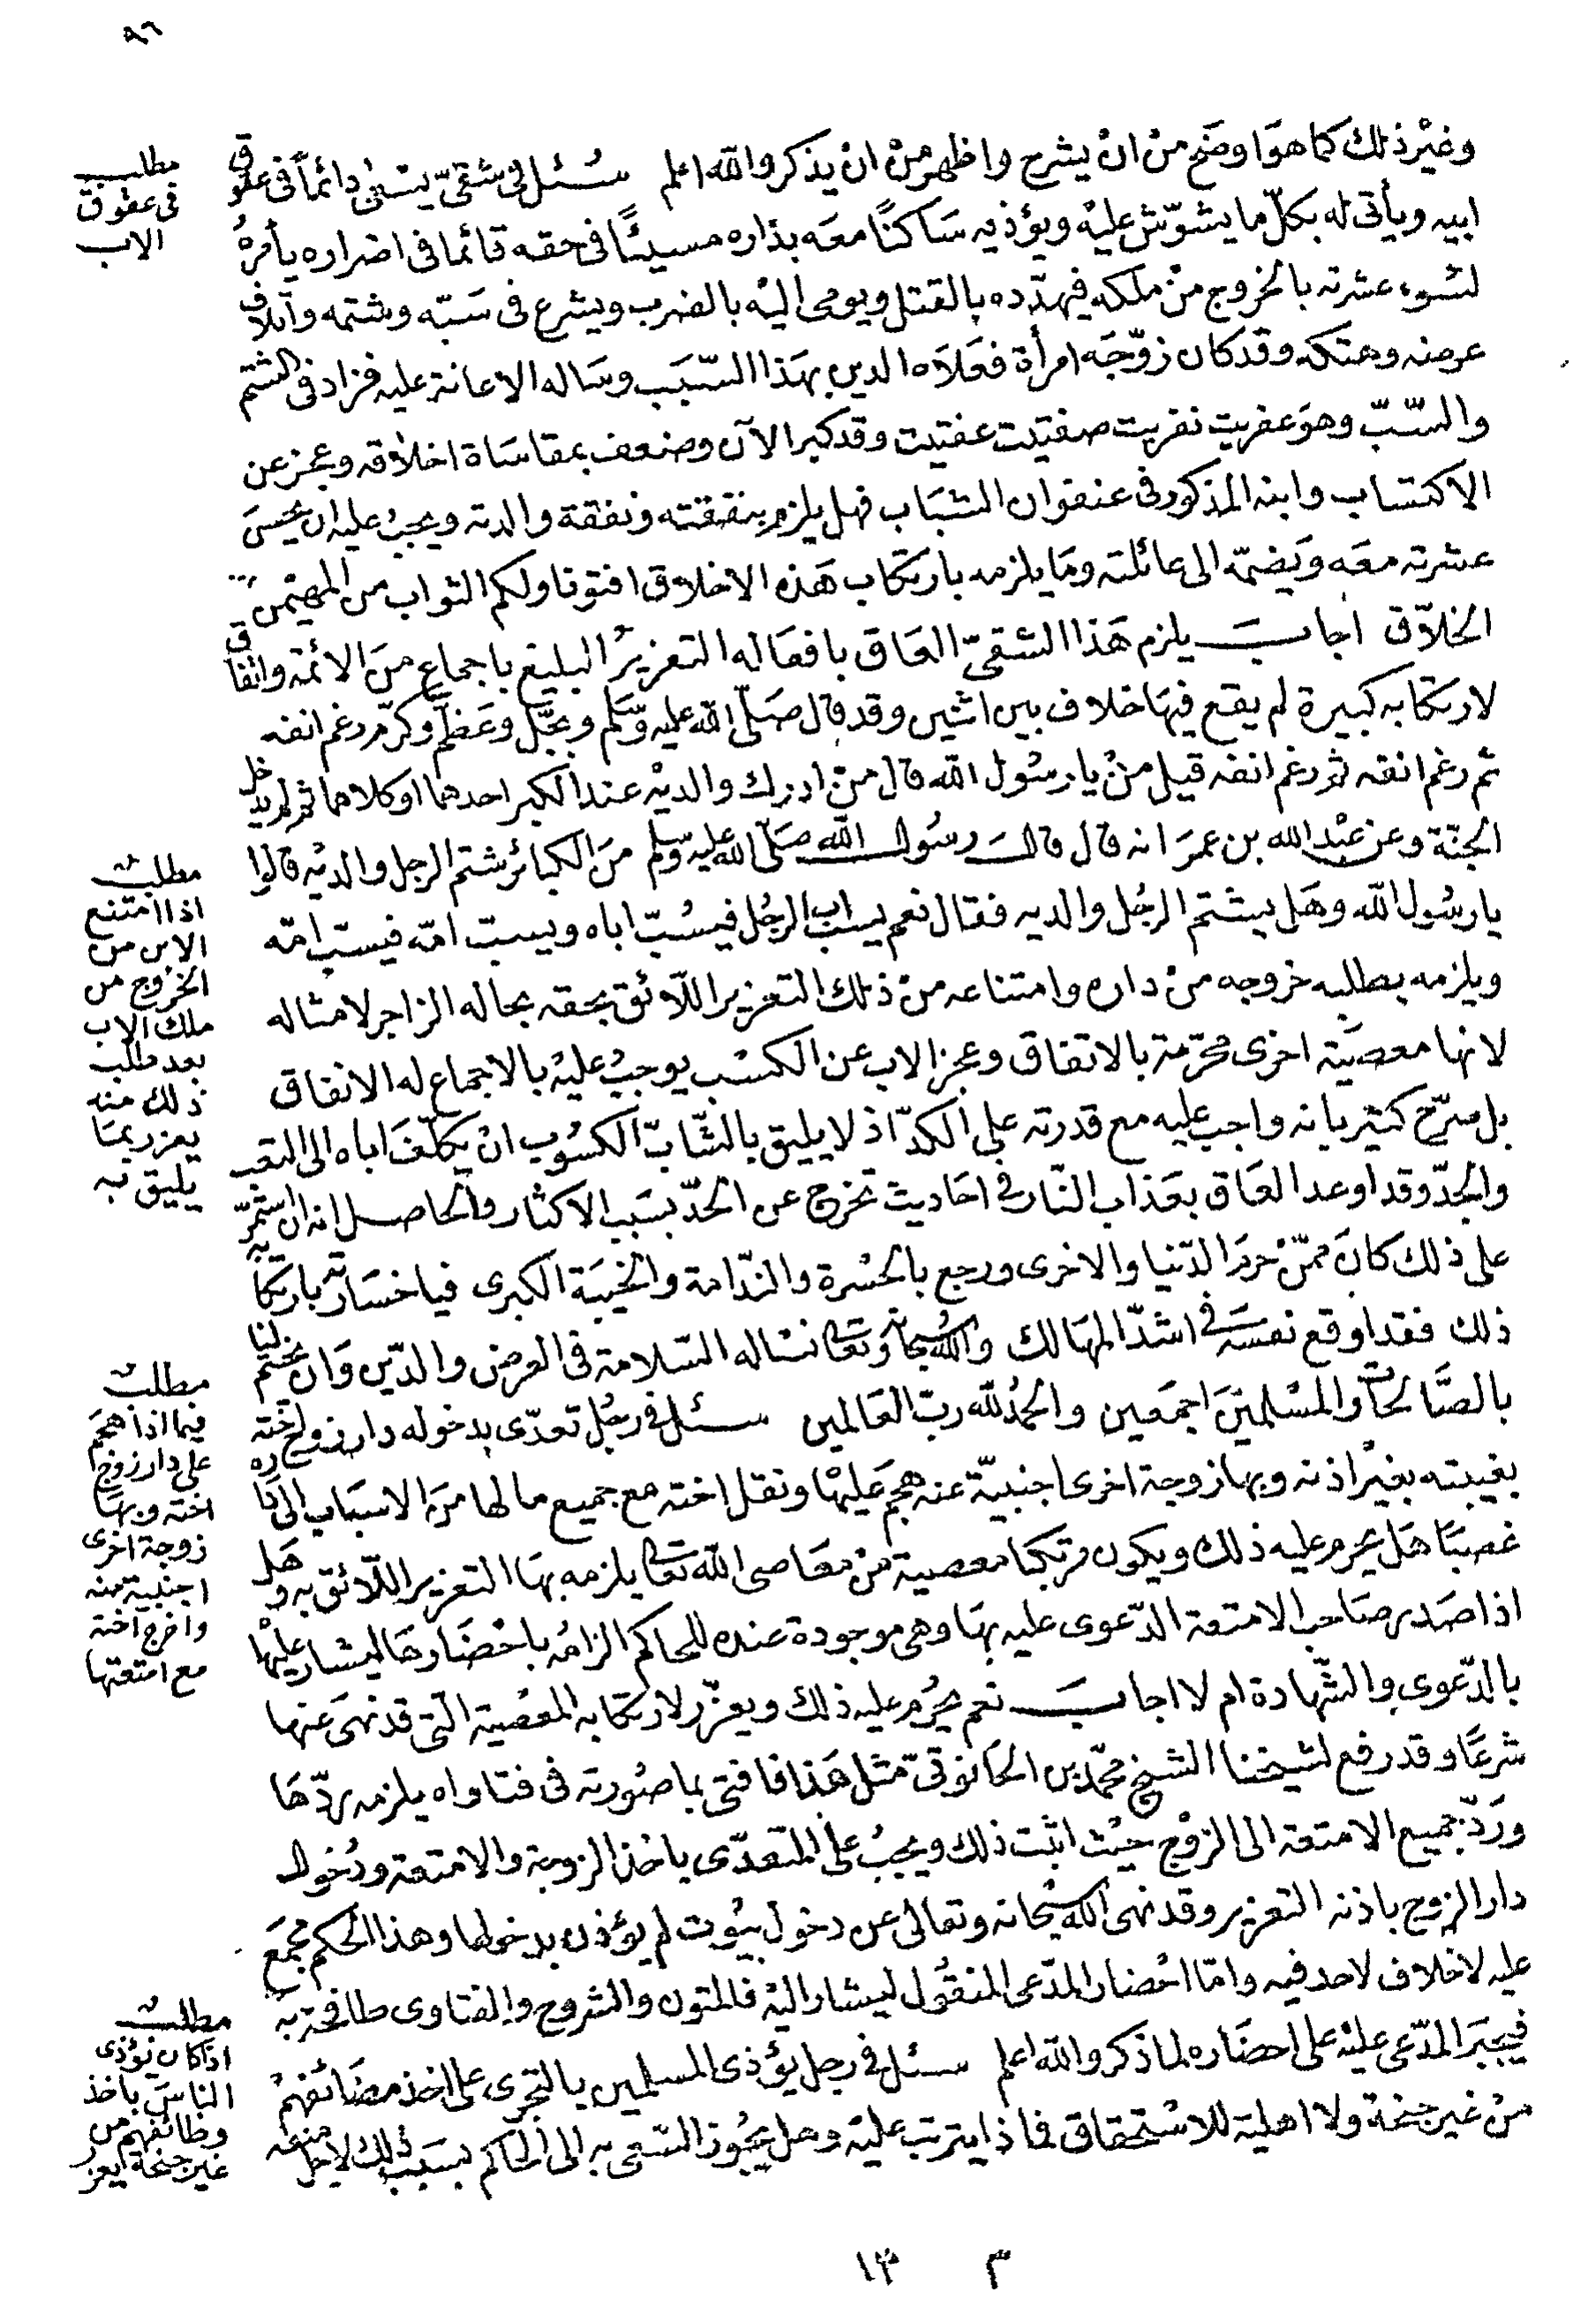 ٩٦
وغير ذلك كما هو اوضح من ان يشرح واظهر من ان يذكر والله اعلم سئل فى شقىّ يسعى دائماً فى عقوق
ابيه ويأتى له بكلّ ما يشوّش عليه ويؤذيه ساكنًا معه بداره مسيئًا فى حقه قائما فى اضراره يأمره
لسوء عشرته بالخروج من ملكه فيهدّده بالقتل ويومى اليه بالضرب ويشرع فى سبّه وشتمه واتلاف
عرضه وهتكه وقد كان زوّجه امرأة فعلاه الدين بهذا السّبب وساله الاعانة عليه فزاد فى الشتم
والسّبّ وهو عفريت نفريت صفتيت عفتيت وقد كبر الآن وضعف بمقاساة اخلاقه وعجز عن
الاكتساب وابنه المذكور فى عنفوان الشباب فهل يلزم بنفقته ونفقة والدته ويجب عليه ان يحسن
عشرته معه ويضمّه الى عائلته وما يلزمه بارتكاب هذه الاخلاق افتونا ولكم الثواب من المهيمن
الخلاّق اجاب يلزم هذا الشقىّ العاق بافعاله التعزير البليغ باجماع من الائمة واتفاق
لارتكابه كبيرة لم يقع فيها خلاف بين اثنين وقد قال صلّى الله عليه وسلّم وبجّل وعظّم وكرّم رغم انفه
ثم رغم انفه ثم رغم انفه قيل من يا رسول الله قال من ادرك والديه عند الكبر احدهما او كلاهما ثم لم يدخل
الجنّة وعن عبد الله بن عمر انه قال قال رسول الله صلّى الله عليه وسلم من الكبائر شتم الرجل والديه قالوا
يا رسول الله وهل يشتم الرجل والديه فقال نعم يساب الرجل فيسُبّ اباه ويسبّ امّه فيسبّ امّه
ويلزمه بطلبه خروجه من داره وامتناعه من ذلك التعزير اللّائق بحقه بحاله الزاجر لامثاله
لانها معصية اخرى محرّمة بالاتفاق وعجز الاب عن الكسب يوجب عليه بالاجماع له الانفاق
بل صرّح كثير بانه واجب عليه مع قدرته على الكدّ اذ لا يليق بالشّابّ الكسوب ان يكلّف اباه الى التعب
والجدّ وقد اوعد العاق بعذاب النّار فى احاديث تخرج عن الحدّ بسبب الاكثار والحاصل انه ان استمرّ
على ذلك كان ممّن حرم الدّنيا والاخرى ورجع بالحسرة والنّدامة والخيبة الكبرى فيا خسارته بارتكابه
ذلك فقد اوقع نفسه فى اشدّ المهالك والله سبحانه وتعالى نساله السّلامة فى العرض والدّين وان يختم لنا
بالصّالحات والمسلمين اجمعين والحمد لله ربّ العالمين سئل فى رجل تعدّى بدخوله دار زوج اخته
بغيبته بغير اذنه وبها زوجة اخرى اجنبيّة عنه هجم عليها ونقل اخته مع جميع ما لها من الاسباب الى داره
غصبًا هل يحرم عليه ذلك ويكون مرتكبا معصية من معاصى الله تعالى يلزمه بها التعزير اللّائق به وهل
اذا صدر صاحب الامتعة الدّعوى عليه بها وهى موجودة عنده للحاكم الزامه باحضارها ليشار عليها
بالدّعوى والشّهادة ام لا اجاب نعم يحرم عليه ذلك ويعزّر لارتكابه المعصية الّتى قد نهى عنها
شرعًا وقد رفع لشيخنا الشيخ محمّد بن الحانوتىّ مثل هذا فافتى بما صورته فى فتاواه يلزمه ردّها
وردّ جميع الامتعة الى الزوج حيث اثبت ذلك ويجب على المتعدّى ياخذ الزوجة والامتعة ودخول
دار الزوج باذنه التعزير وقد نهى الله سبحانه وتعالى عن دخول بيوت لم يؤذن بدخولها وهذا الحكم مجمع
عليه لا خلاف لاحد فيه وامّا احضار المدّعى المنقول ليشار اليه فالمتون والشروح والفتاوى طافحة به
فيجبر المدّعى عليه على احضاره لما ذكر والله اعلم سئل فى رجل يؤذى المسلمين بالتجرى على اخذ
من غير جنحة ولا اهلية للاستحقاق فماذا يترتب عليه وهل يجوز السّعى به الى الحاكم بسبب ذلك لاجل منعه
مطلب
فى عقوق
الاب
مطلب
اذا امتنع
الابن من
الخروج من
ملك الاب
بعد طلب
ذلك منه
يعزر بما
يليق به
مطلب
فيما اذا هجم
على دار زوج
اخته وبها
زوجة اخرى
اجنبية منه
واخرج اخته
مع امتعتها
مطلب
اذا كان يؤذى
الناس باخذ
وظائفهم من
غير جنحة يعزر
٣ ١٣